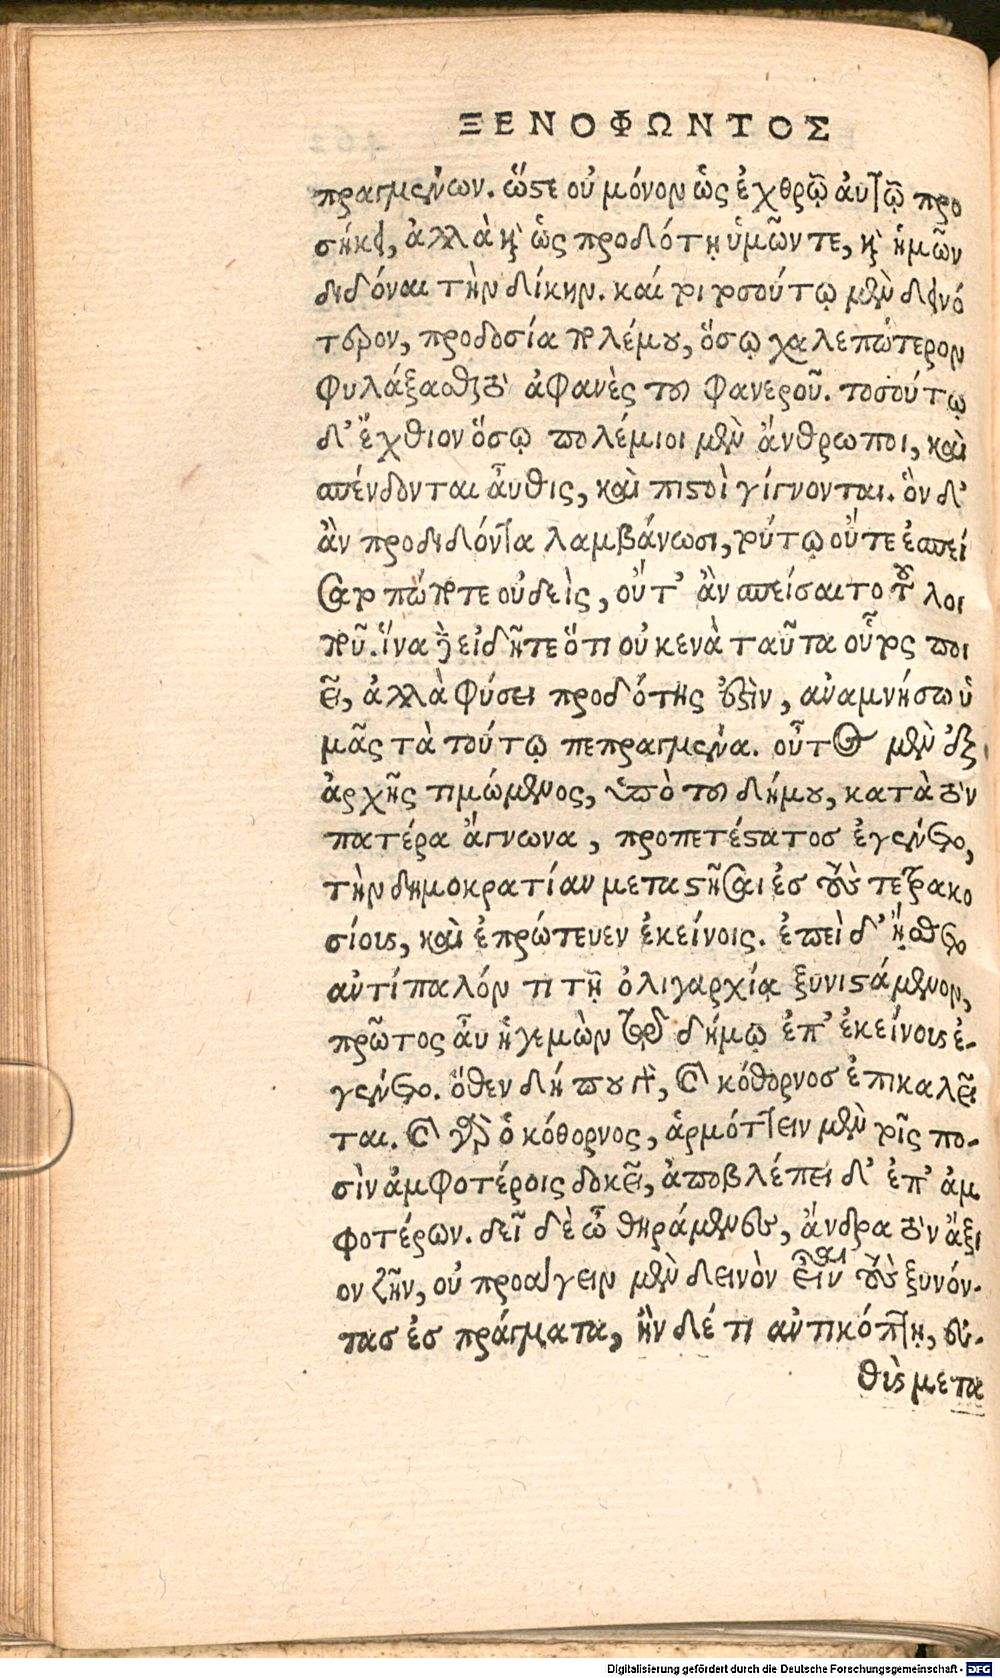 ΞΕΝΟΦΩΝΤΟΣ
πραγμένων. ὥστε οὐ μόνον ὡς ἐχθρῷ αὐτῷ προ
σήκει, ἀλλὰ καὶ ὡς προδότῃ ὑμῶν τε, καὶ ἡμῶν
διδόναι τὴν δίκην. καί τοι τοσούτῳ μὲν δεινό
τερον, προδοσία πολέμου, ὅσῳ χαλεπώτερον
φυλάξασθαι τὸ ἀφανὲς τοῦ φανεροῦ. τοσούτῳ
δ' ἔχθιον ὅσῳ πολέμιοι μὲν ἄνθρωποι, καὶ
σπένδονται αὖθις, καὶ πιστοὶ γίγνονται. ὃν δ'
ἂν προδιδόντα λαμβάνωσι, τούτῳ οὔτε ἐσπεί
σατο πώποτε οὐδεὶς, οὔτ' ἂν σπείσαιτο τοῦ λοι
ποῦ. ἵνα δὲ εἰδῆτε ὅτι οὐ κενὰ ταῦτα οὗτος ποι
εῖ, ἀλλὰ φύσει προδότης ἐστὶν, ἀναμνήσω ὑ
μᾶς τὰ τούτῳ πεπραγμένα. οὗτος μὲν ἐξ
ἀρχῆς τιμώμενος, ὑπὸ τοῦ δήμου, κατὰ τὸν
πατέρα ἄγνωνα, προπετέστατος ἐγένετο,
τὴν δημοκρατίαν μεταστῆσαι ἐς τοὺς τετρακο
σίους, καὶ ἐπρώτευεν ἐκείνοις. ἐπεὶ δ' ᾔσθετο
αὐτίπαλόν τι τῇ ὀλιγαρχίᾳ ξυνιστάμενον,
πρῶτος αὖ ἡγεμὼν τῷ δήμῳ ἐπ' ἐκείνους ἐ-
γένετο. ὅθεν δήπου καὶ, κόθορνος ἐπικαλεῖ
ται. καὶ γὰρ ὁ κόθορνος, ἁρμόττειν μὲν τοῖς πο-
σὶν ἀμφοτέροις δοκεῖ, ἀποβλέπει δ' ἐπ' ἀμ
φοτέρων. δεῖ δὲ ὦ θηράμενες, ἄνδρα τὸν ἄξι
ον ζῆν, οὐ προάγειν μὲν δεινὸν εἶναι τοὺς ξυνόν-
τας ἐς πράγματα, ἢν δέ τι ἀντικόπτῃ, εὐ-
θὺς μετα
Digitalisierung gefördert durch die Deutsche Forschungsgemeinschaft - DFG